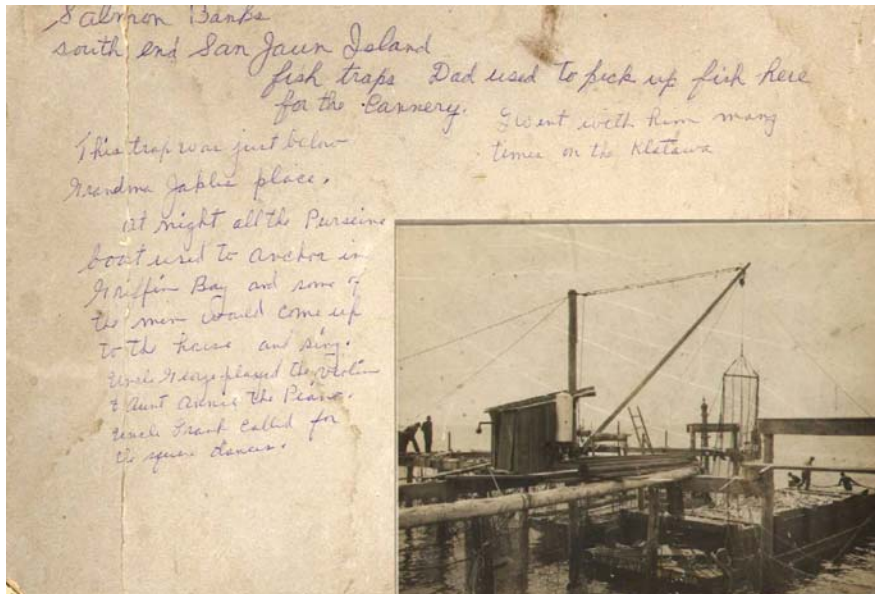 Salmon Banks
south end San Jaun Island
fish traps Dad used to pick up fish here
for the Cannery.
I went with him many
times on the Klatawa
This trap was just below
Grandma Jaklie place.
at night all the Purseine
boat used to anchor in
Griffin Bay and some of
the men would come up
to the house and sing.
Uncle George played the Violin
& Aunt Annie the Piano.
Uncle Frank called for
the square dances.